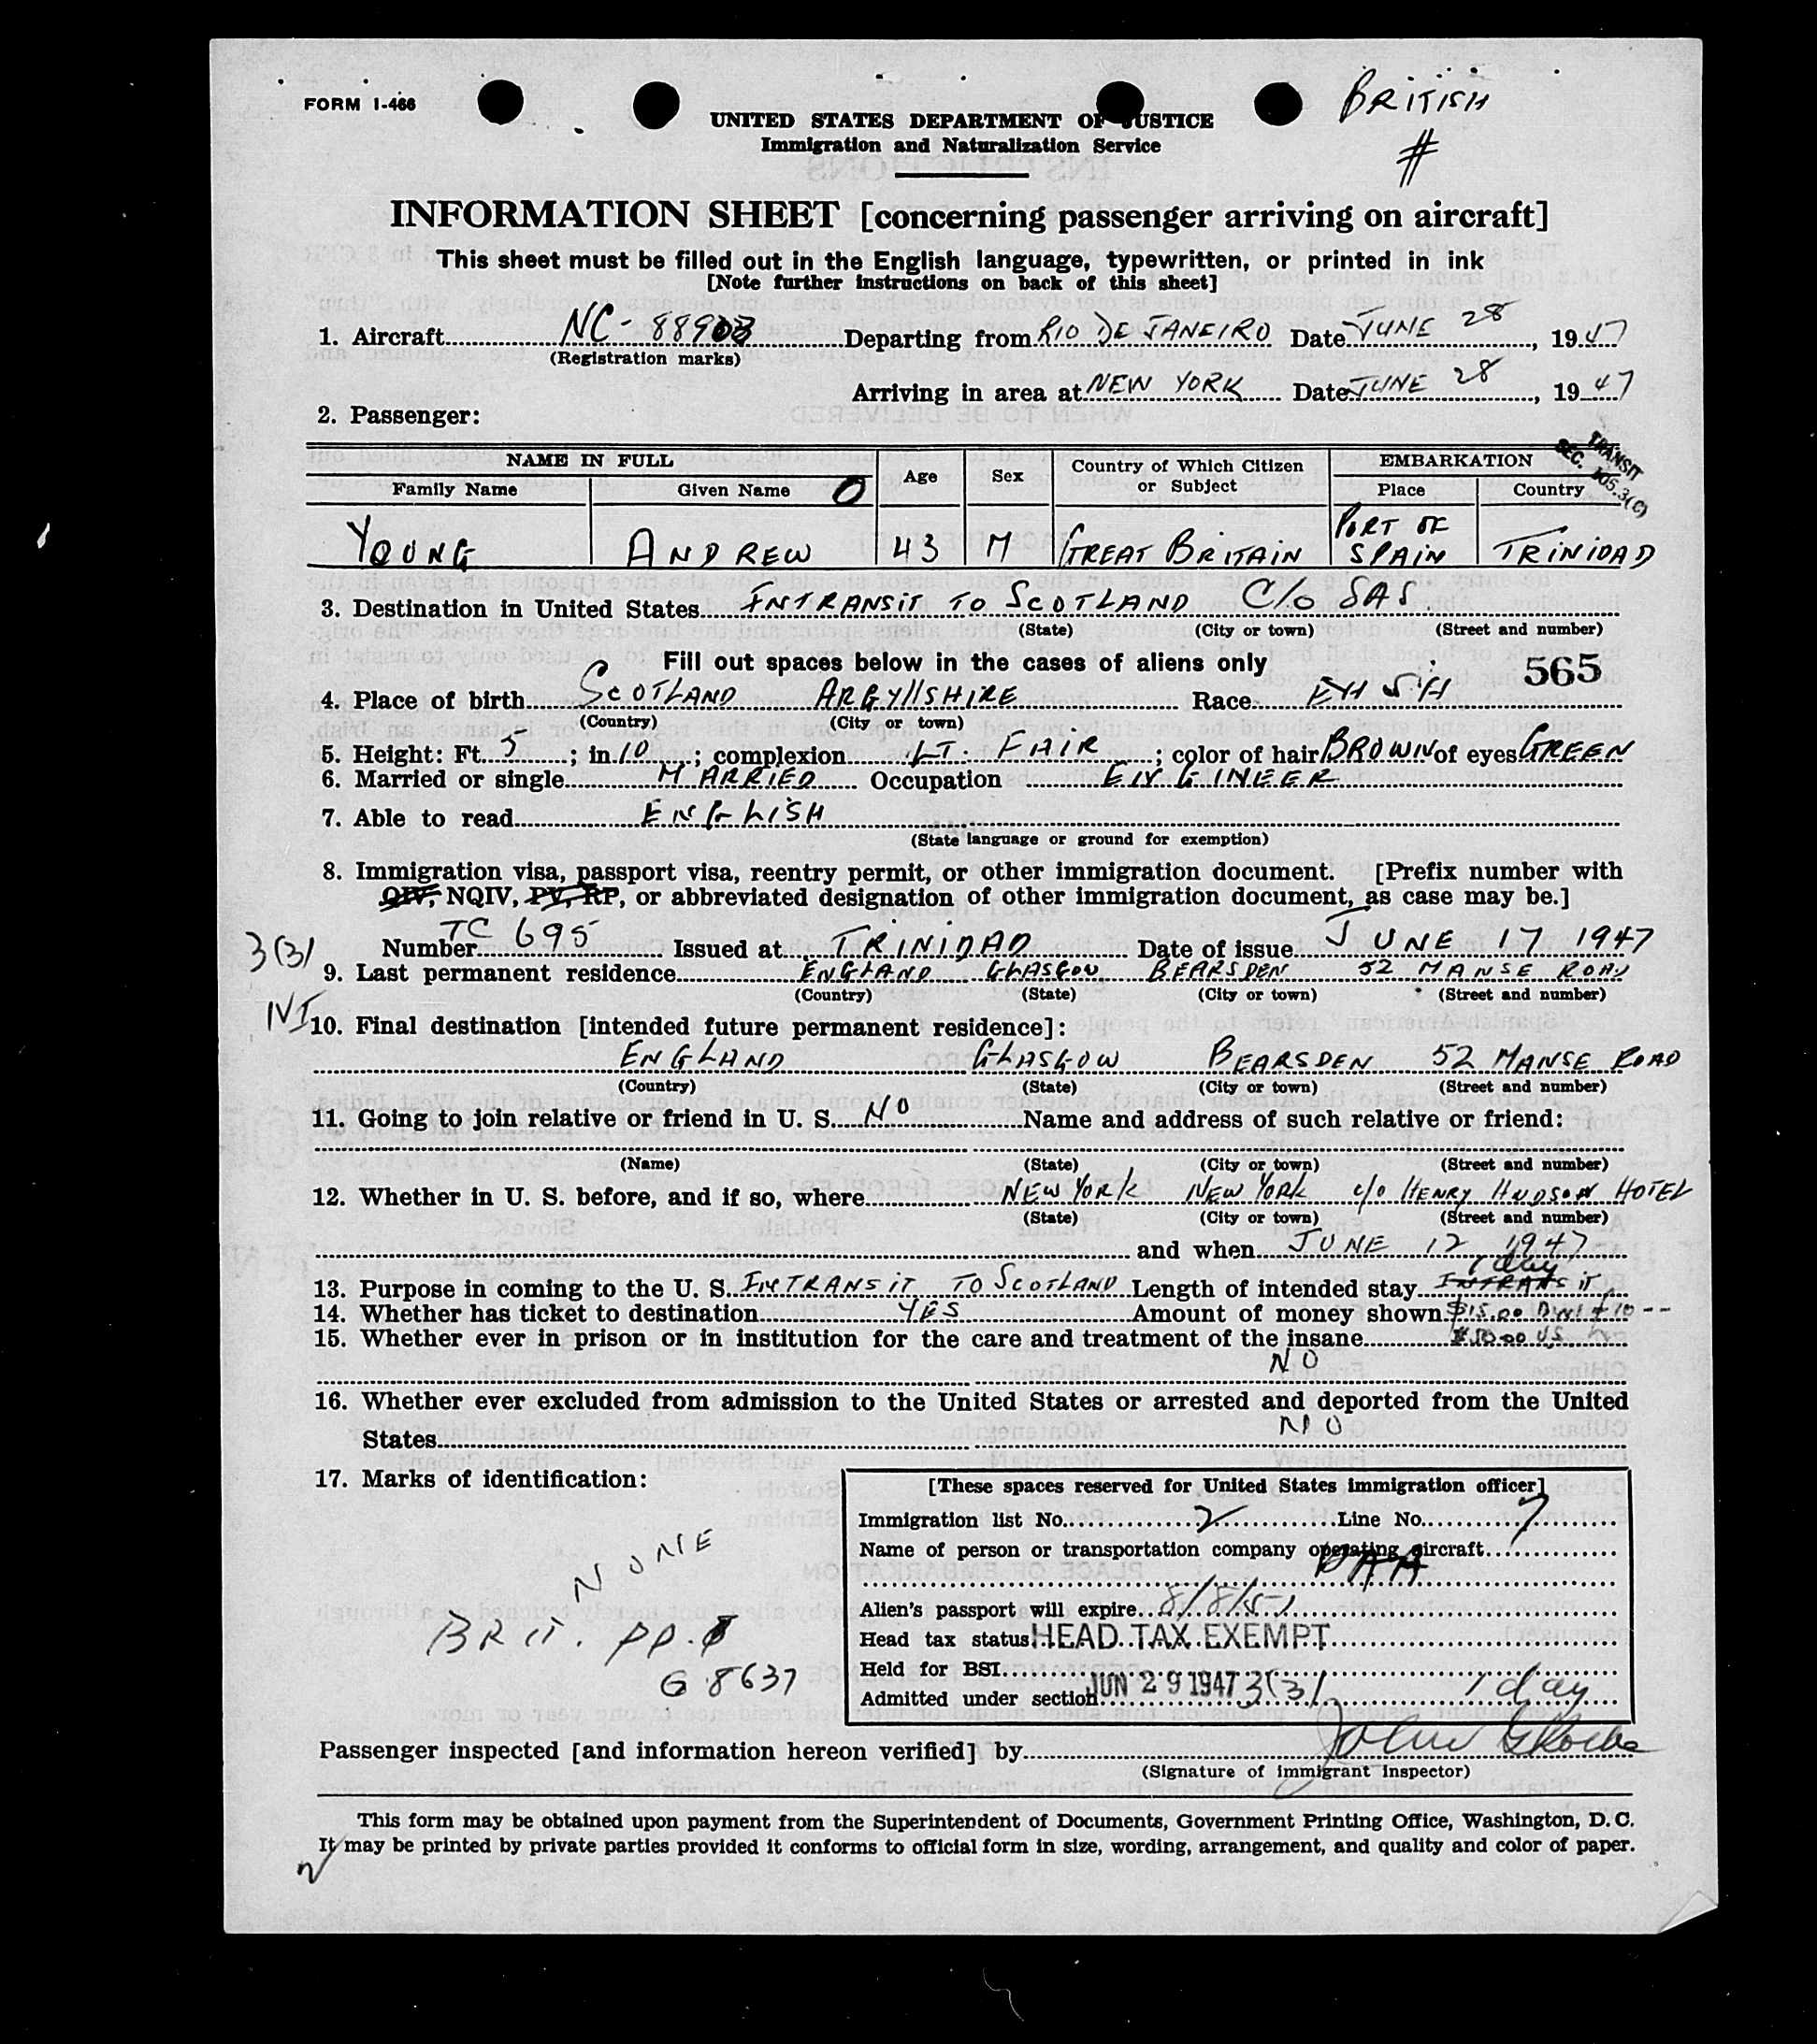 FORM I-466
BRITISH
#
UNITED STATES DEPARTMENT OF JUSTICE
Immigration and Naturalization Service
INFORMATION SHEET [concerning passenger arriving on aircraft]
This sheet must be filled out in the English language, typewritten, or printed in ink
[Note further instructions on back of this sheet]
1. Aircraft NC-88903 Departing from RIO DE JANEIRO Date JUNE 28, 1947
(Registration marks)
Arriving in area at NEW YORK Date JUNE 28, 1947
2. Passenger:
TRANSIT
SEC. 105.3(C)
NAME IN FULL Age Sex Country of Which Citizen or Subject EMBARKATION
Family Name Given Name Place Country
YOUNG ANDREW 43 M GREAT BRITAIN PORT OF SPAIN TRINIDAD
3. Destination in United States INTRANSIT TO SCOTLAND C/O SAS
(State) (City or town) (Street and number)
Fill out spaces below in the cases of aliens only
565
4. Place of birth SCOTLAND ARGYllSHIRE Race
(Country) (City or town)
5. Height: Ft. 5; in. 10; complexion LT. FAIR; color of hair BROWN of eyes GREEN
6. Married or single MARRIED Occupation ENGINEER
7. Able to read ENGLISH
(State language or ground for exemption)
8. Immigration visa, passport visa, reentry permit, or other immigration document. [Prefix number with
QIV, NQIV, PV, RP, or abbreviated designation of other immigration document, as case may be.]
3(3) Number TC 695 Issued at TRINIDAD Date of issue JUNE 17 1947
9. Last permanent residence ENGLAND GLASGOW BEARSDEN 52 MANSE ROAD
(Country) (State) (City or town) (Street and number)
10. Final destination [intended future permanent residence]:
ENGLAND GLASGOW BEARSDEN 52 MANSE ROAD
(Country) (State) (City or town) (Street and number)
11. Going to join relative or friend in U. S. NO Name and address of such relative or friend:
(Name) (State) (City or town) (Street and number)
12. Whether in U. S. before, and if so, where NEW YORK NEW YORK c/o HENRY HUDSON HOTEL
(State) (City or town) (Street and number)
and when JUNE 12 1947
1 day
13. Purpose in coming to the U. S. INTRANSIT TO SCOTLAND Length of intended stay INTRANSIT
14. Whether has ticket to destination YES Amount of money shown $15.00
15. Whether ever in prison or in institution for the care and treatment of the insane
NO
16. Whether ever excluded from admission to the United States or arrested and deported from the United
States NO
17. Marks of identification:
NONE
BRIT. PP.
G 8637
[These spaces reserved for United States immigration officer]
Immigration list No. 2 Line No. 7
Name of person or transportation company operating aircraft
PAA
Alien's passport will expire 8/8/51
Head tax status HEAD TAX EXEMPT
Held for BSI
Admitted under section JUN 29 1947 3(3) 1 day
Passenger inspected [and information hereon verified] by John
(Signature of immigrant inspector)
This form may be obtained upon payment from the Superintendent of Documents, Government Printing Office, Washington, D. C.
It may be printed by private parties provided it conforms to official form in size, wording, arrangement, and quality and color of paper.